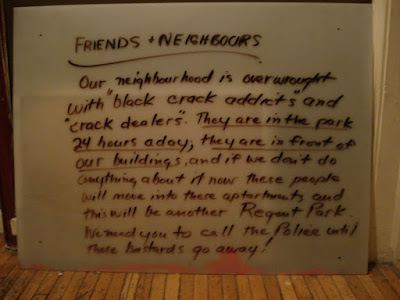 FRIENDS + NEIGHBOURS
Our neighbourhood is overwrought
with "black crack addicts" and
"crack dealers". They are in the park
24 hours a day, they are in front of
our buildings, and if we don't do
anything about it now these people
will move into these aptartments and
this will be another Regent Park.
We need you to call the Police until
these bastards go away!